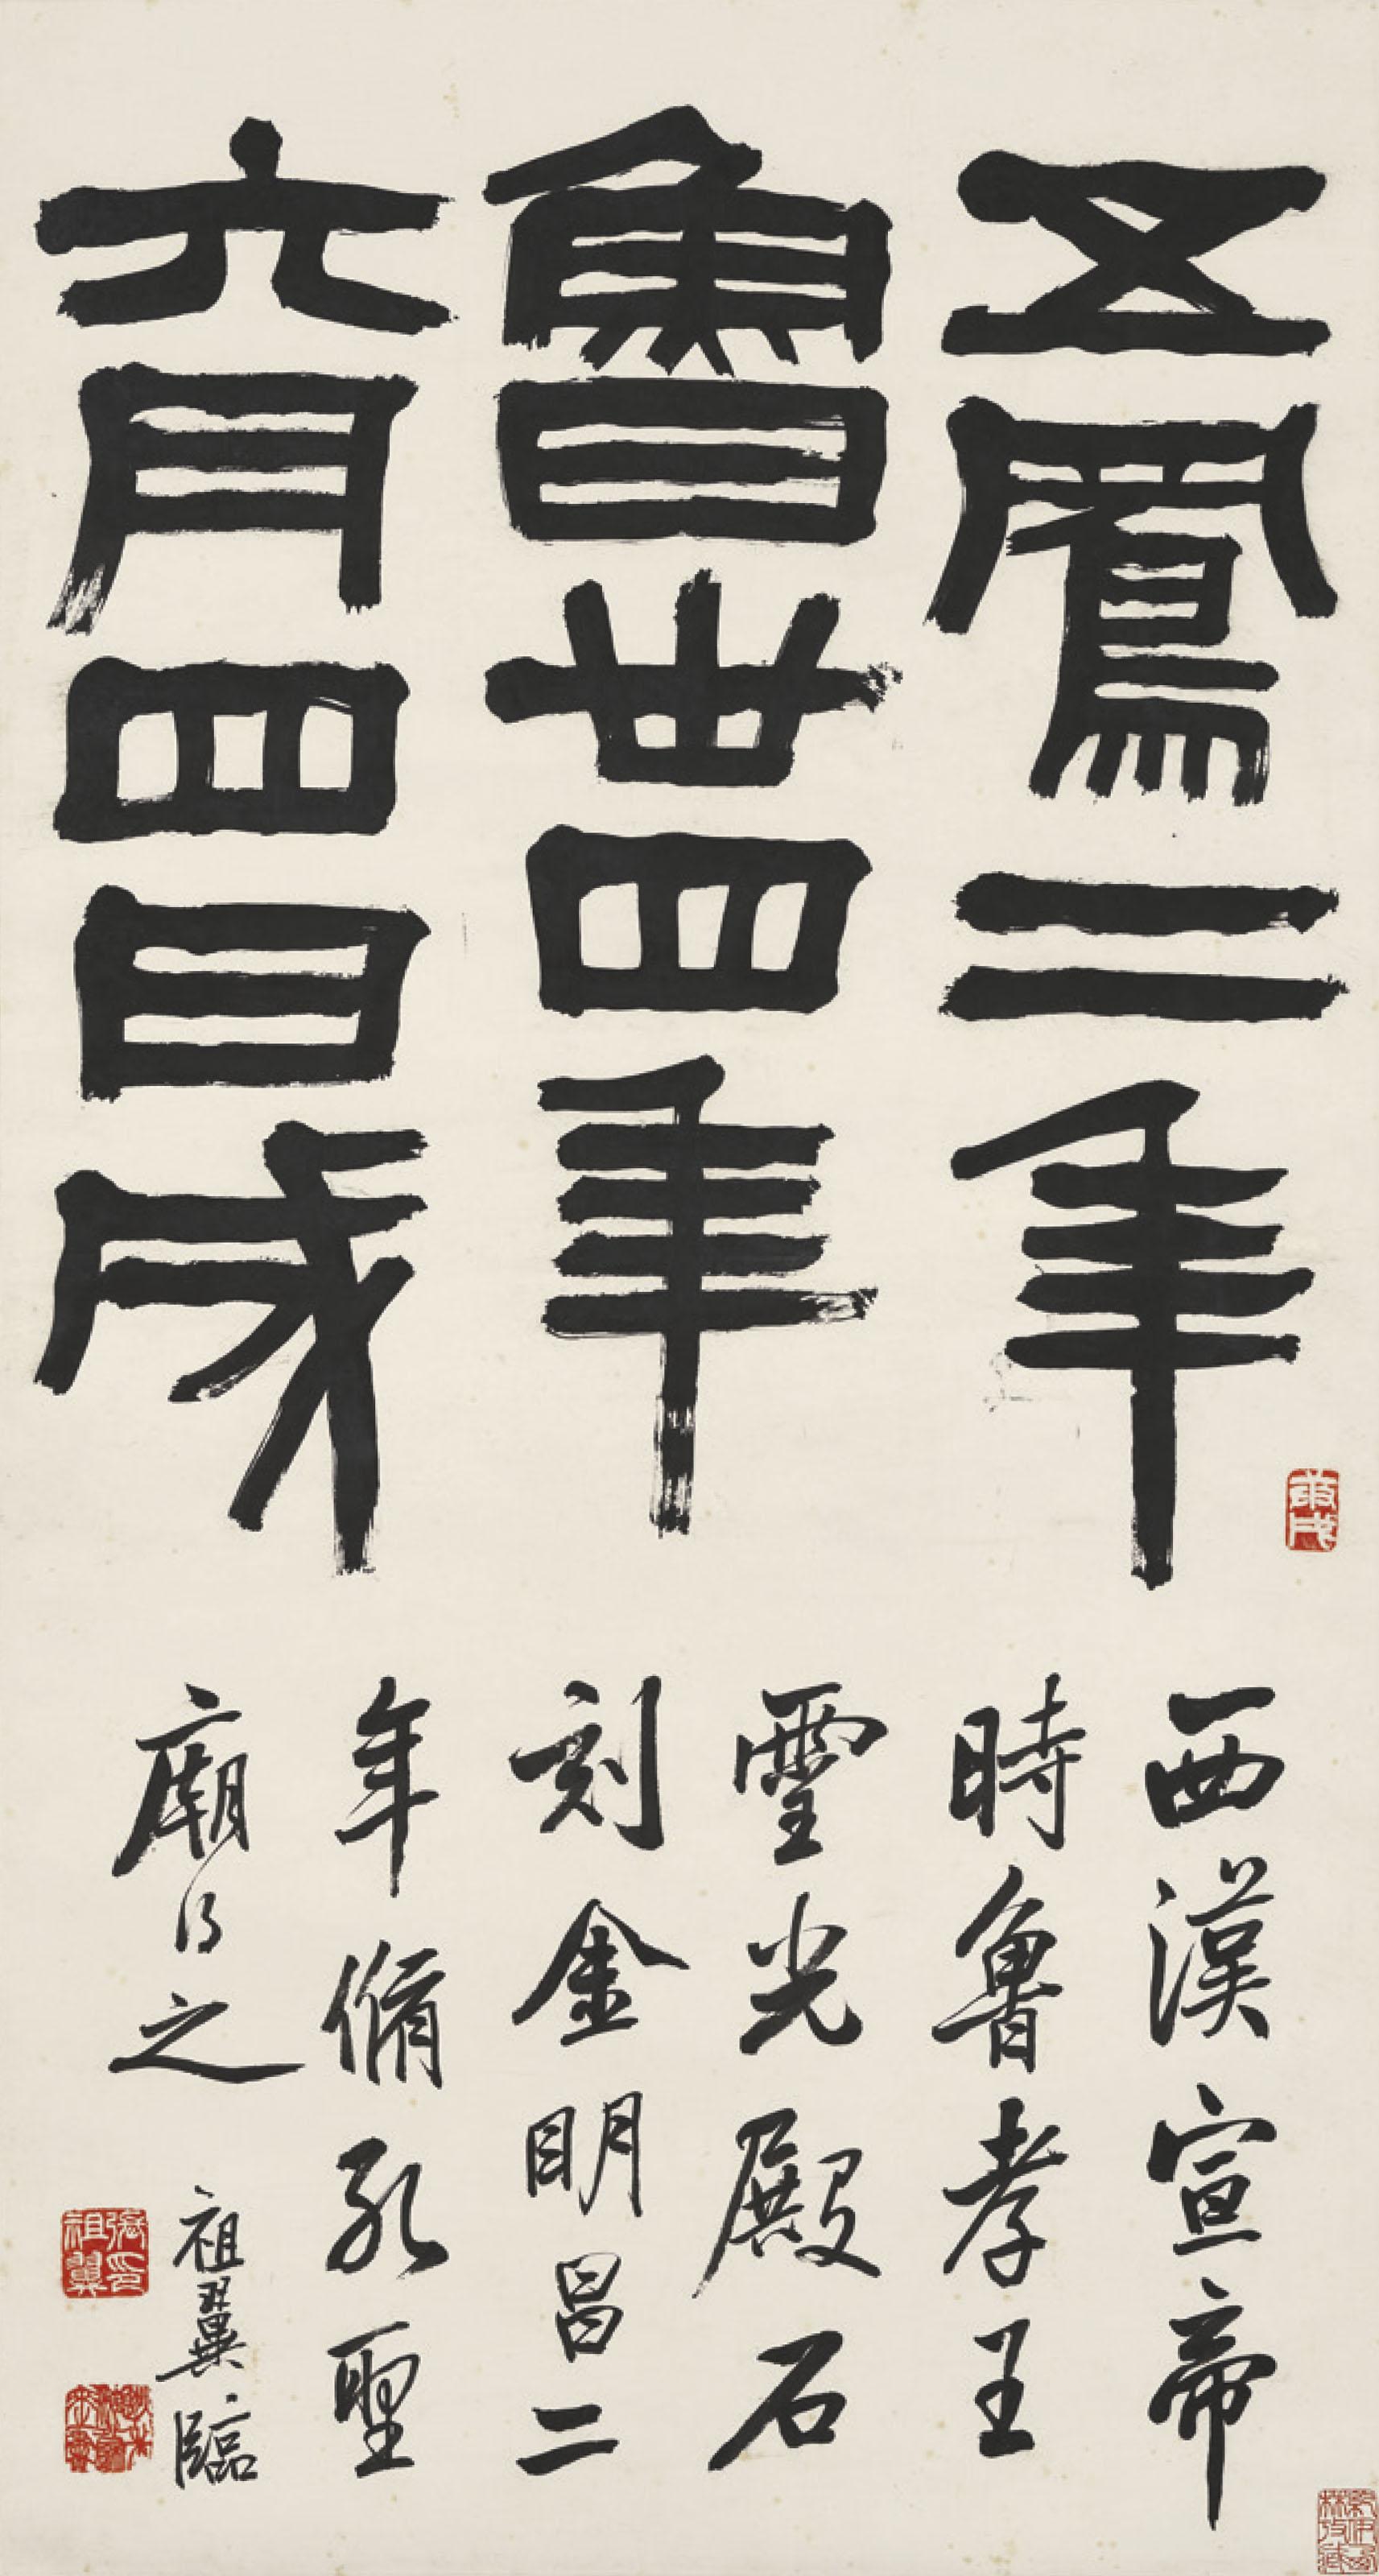 五鳳二年
魯卅四年
六月四日成
西漢宣帝
時魯孝王
霊光殿石
刻金明昌二
年脩孔聖
廟得之
祖翼臨
庚戌
張祖翼印